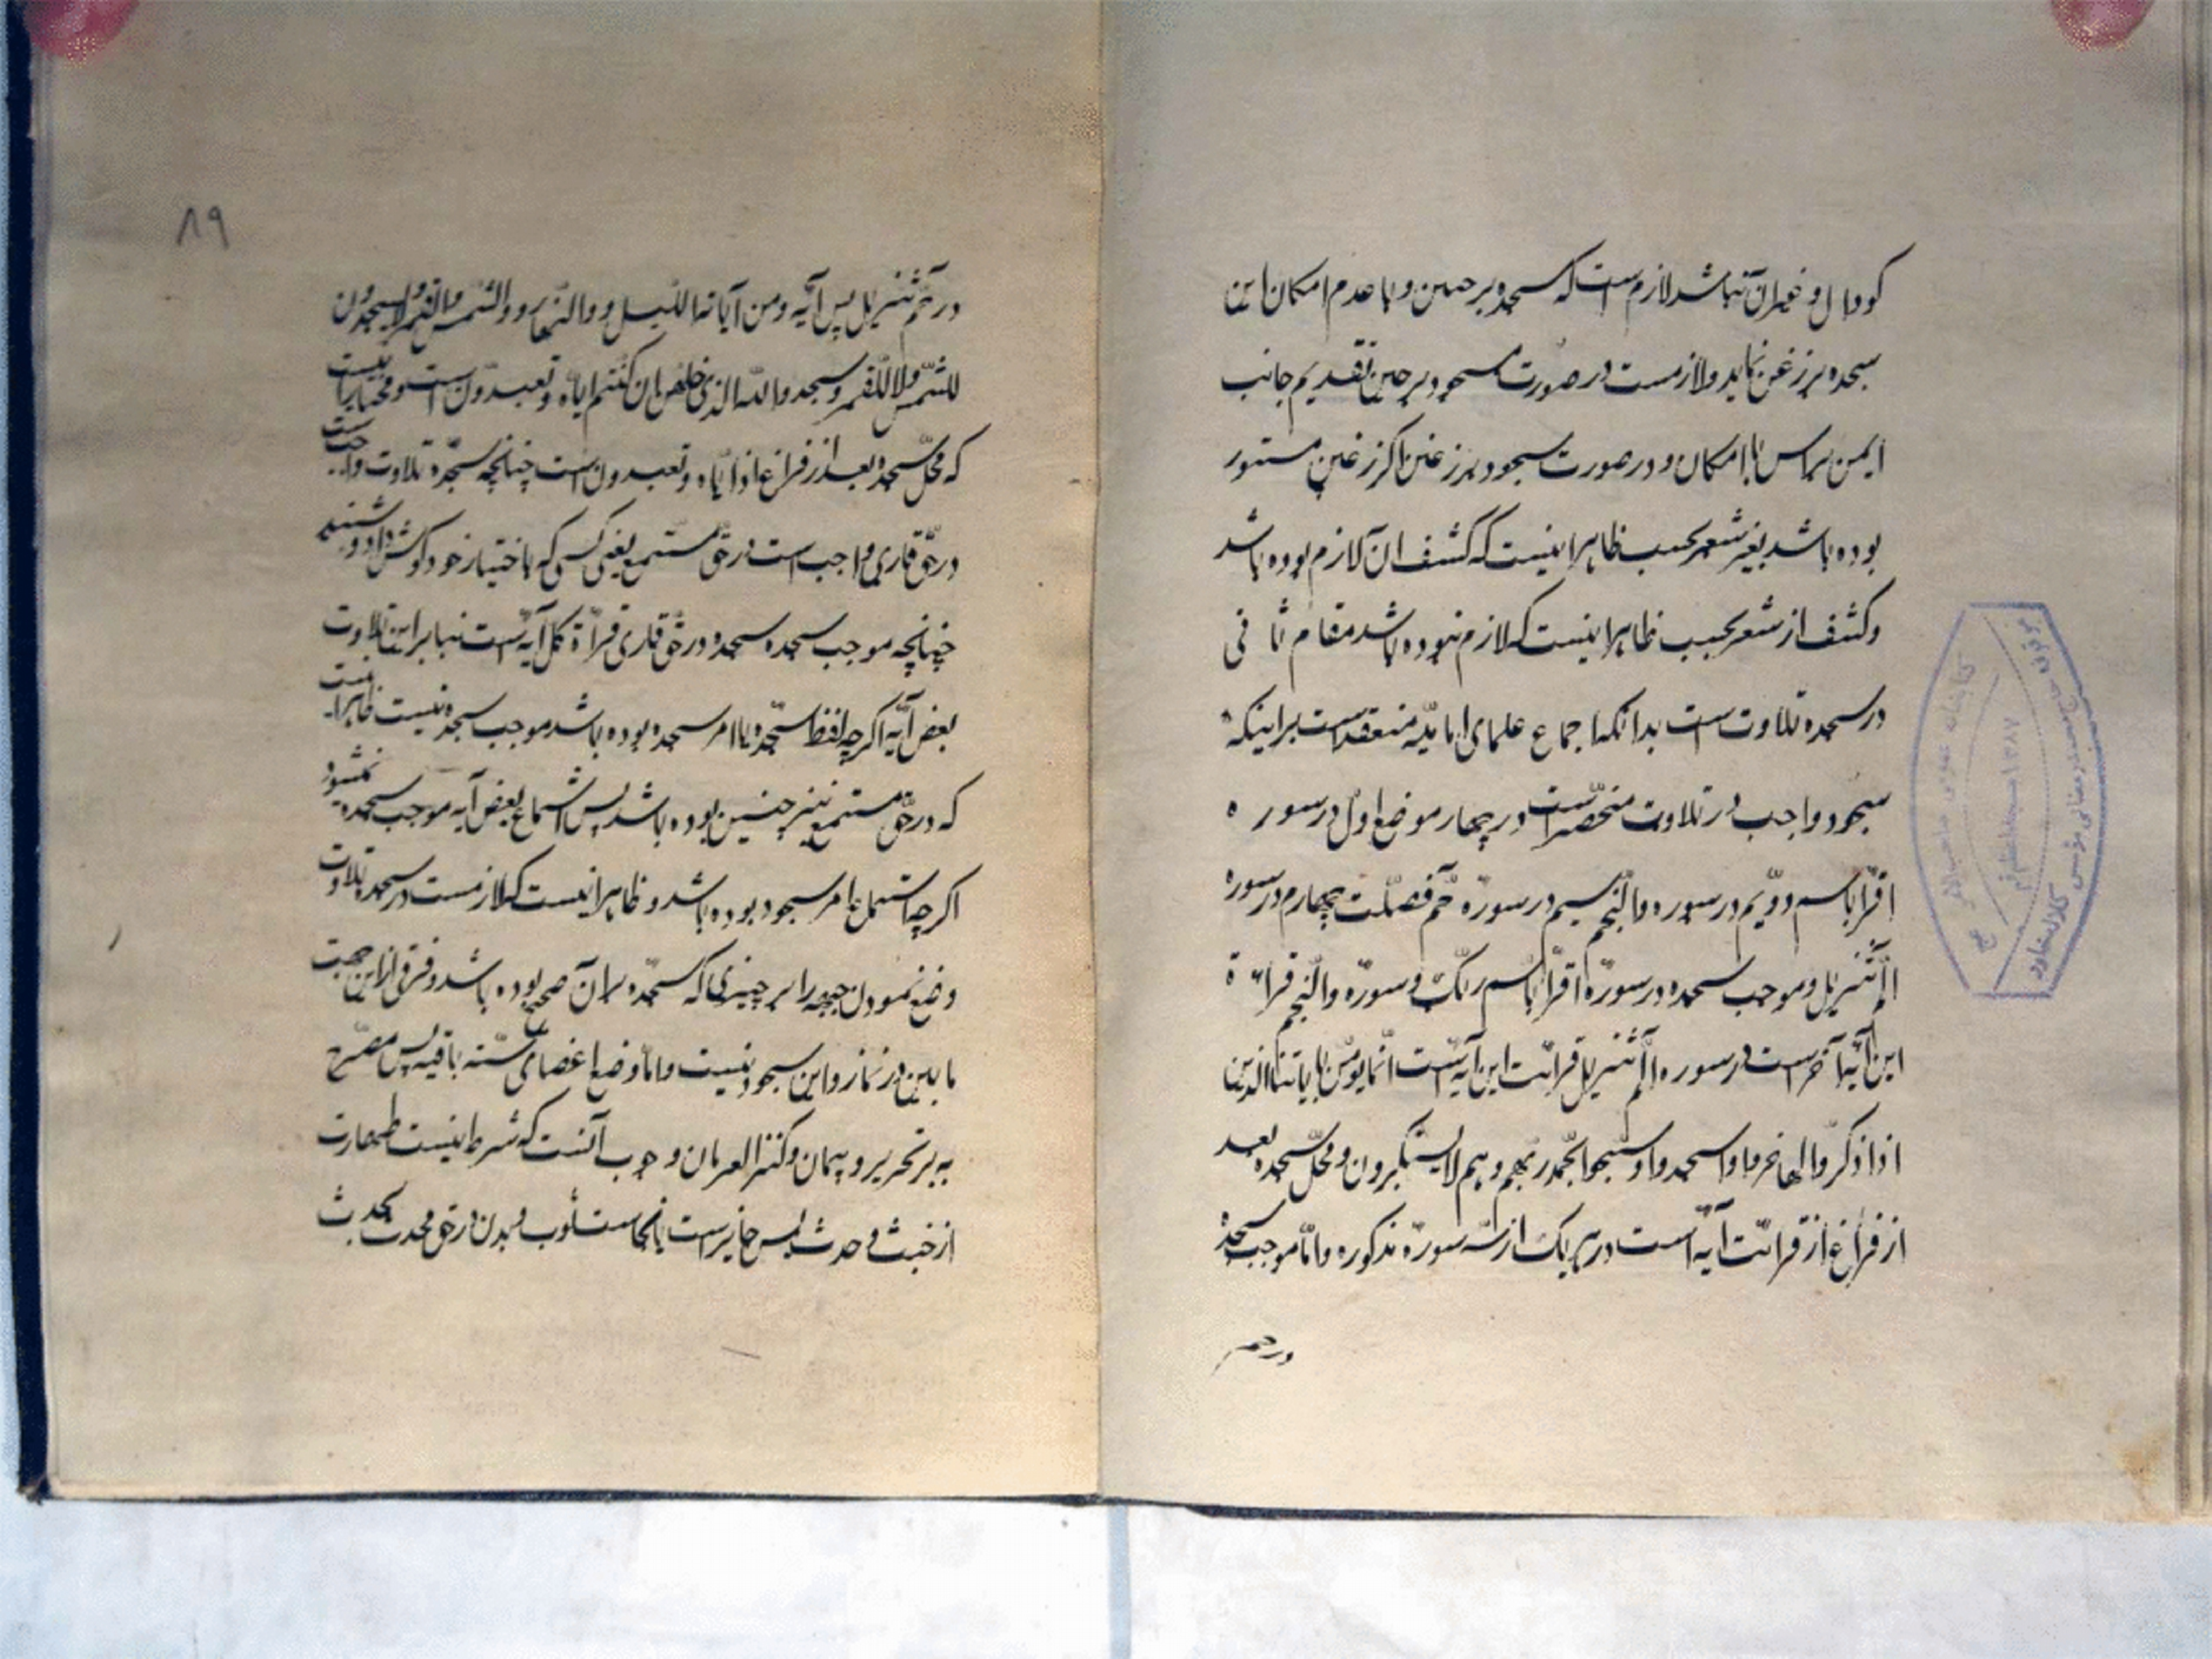 کودال و غیران نباشد لازم است که سجود بر جبین و با عدم امکان این
سجده بر زغن نماید و لازمست در صورت سجود بر جبین تقدیم جانب
ایمن براس با امکان و در صورت سجود بر زغن اکر زغن مستور
بوده باشد بغیر شعر بحسب ظاهر اینست که کشف ان لازم بوده باشد
و کشف از شعر بحسب ظاهر اینست که لازم نبوده باشد مقام ثانی
در سجده تلاوت است بدانکه اجماع علمای امامیه منعقد است بر اینکه
سجود واجب در تلاوت منحصر است در چهار موضع اول در سوره
اقرا باسم دویم در سوره والنجم سیم در سوره حم فصلت چهارم در سوره
الم تنزیل و موجب سجده در سوره اقرا باسم ربک و سوره والنجم قرائة
این آیه آخر است در سوره الم تنزیل قرائت این آیه است انما یومن بایاتنا الذین
اذا ذکروا بها خروا سجدوا و سبحوا بحمد ربهم و هم لا یستکبرون و محل سجده بعد
از فراغ از قرائت آیه است در هر یک از سه سوره مذکوره و اما موجب سجده
در حم
۸۹
در حم تنزیل پس آیه و من آیاته اللیل و والنهار و والشمس والقمر لا تسجدون
للشمس ولا للقمر و سجدوا لله الذی خلقهن ان کنتم ایاه و تعبدون است و مختار اینست
که محل سجده بعد از فراغ از ایاه و تعبدون است چنانچه سجده تلاوت واجبست
در حق قاری واجب است در حق مستمع یعنی کسی که باختیار خود کوش داد و شنید
چنانچه موجب سجده سجده در حق قاری قرآة کل آیه است بنابراین تلاوت
بعض آیه اکرچه لفظ سجده یا امر سجده بوده باشد موجب سجده نیست ظاهرا اینست
که در حق مستمع نیز چنین بوده باشد پس استماع بعض آیه موجب سجده نمیشود
اکرچه استماع امر سجود بوده باشد و ظاهر اینست که لازمست در سجده تلاوت
وضع نمودن جبهه را بر چیزی که سجده بران صحیح بوده باشد و فرقی از این جهت
مابین در نماز و این سجود نیست و اما وضع اعضای سته باقیه پس مصرح
به بر تحریر و بیان و کنز العرفان وجوب آنست که شرط نیست طهارت
از خبث و حدث پس جایز است با نجاست ثوب و بدن در حق محدث بحدث